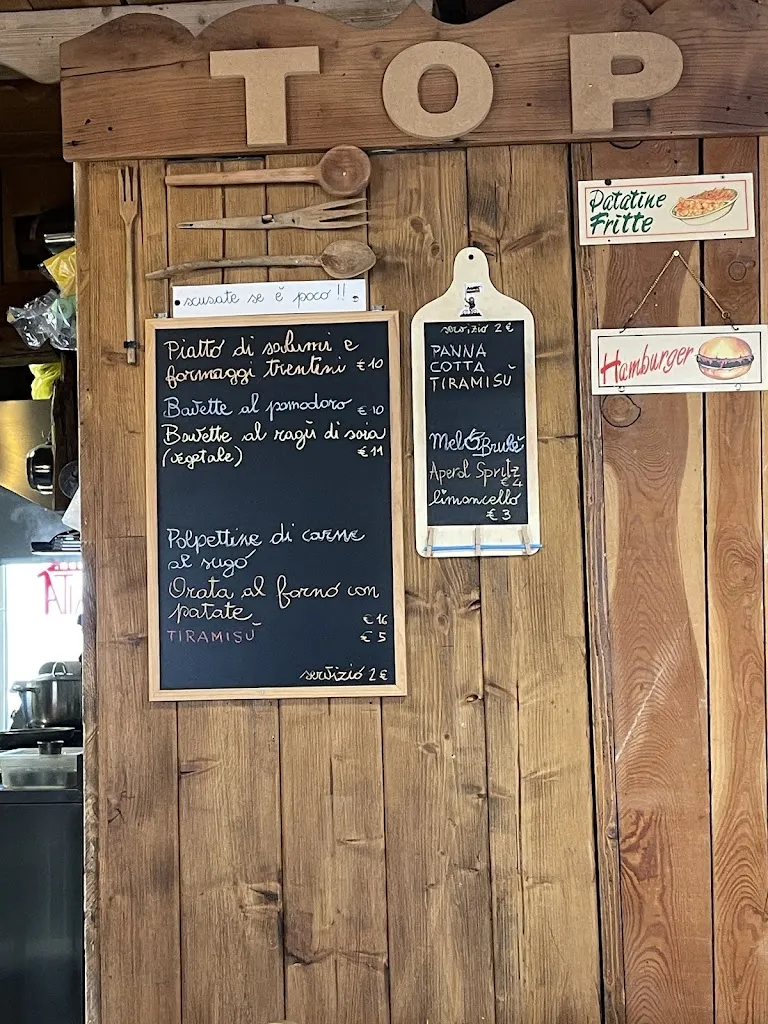 TOP
Patatine
Fritte
scusate se è poco!!
Piatto di salumi e
formaggi trentini €10
Bavette al pomodoro €10
Bavette al ragù di soia
(vegetale) €11
Polpettine di carne
al sugo
Orata al forno con
patate €16
TIRAMISÙ €5
servizio 2€
servizio 2€
PANNA
COTTA
TIRAMISÙ
Brulè
Aperol Spritz
€4
limoncello
€3
Hamburger